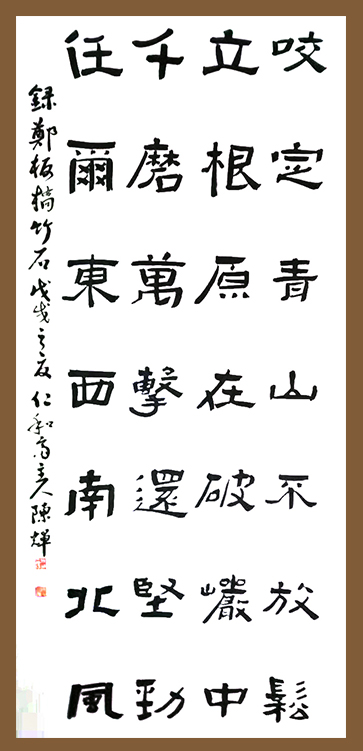 咬定青山不放鬆
立根原在破巖中
千磨萬擊還堅勁
任爾東西南北風
錄鄭板橋竹石戊戌之夏仁和齋主人陳燁